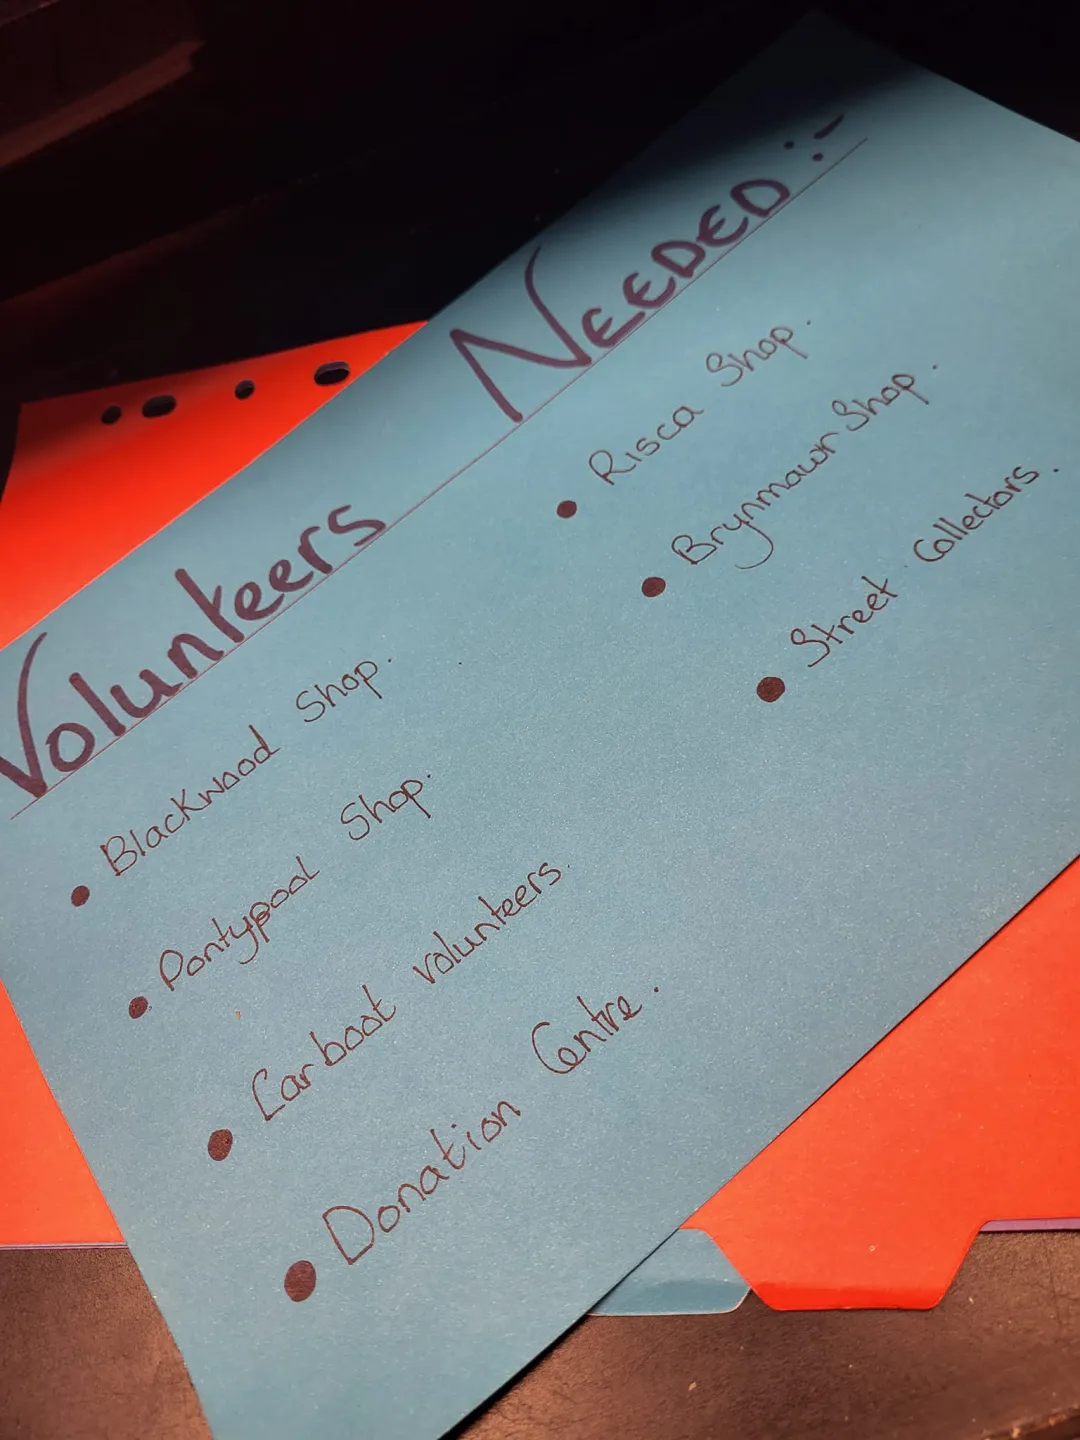 Volunteers NEEDED :-
• Blackwood Shop.
• Pontypool Shop.
• Carboot volunteers.
• Donation Centre.
• Risca Shop.
• Brynmawr Shop.
• Street Collectors.